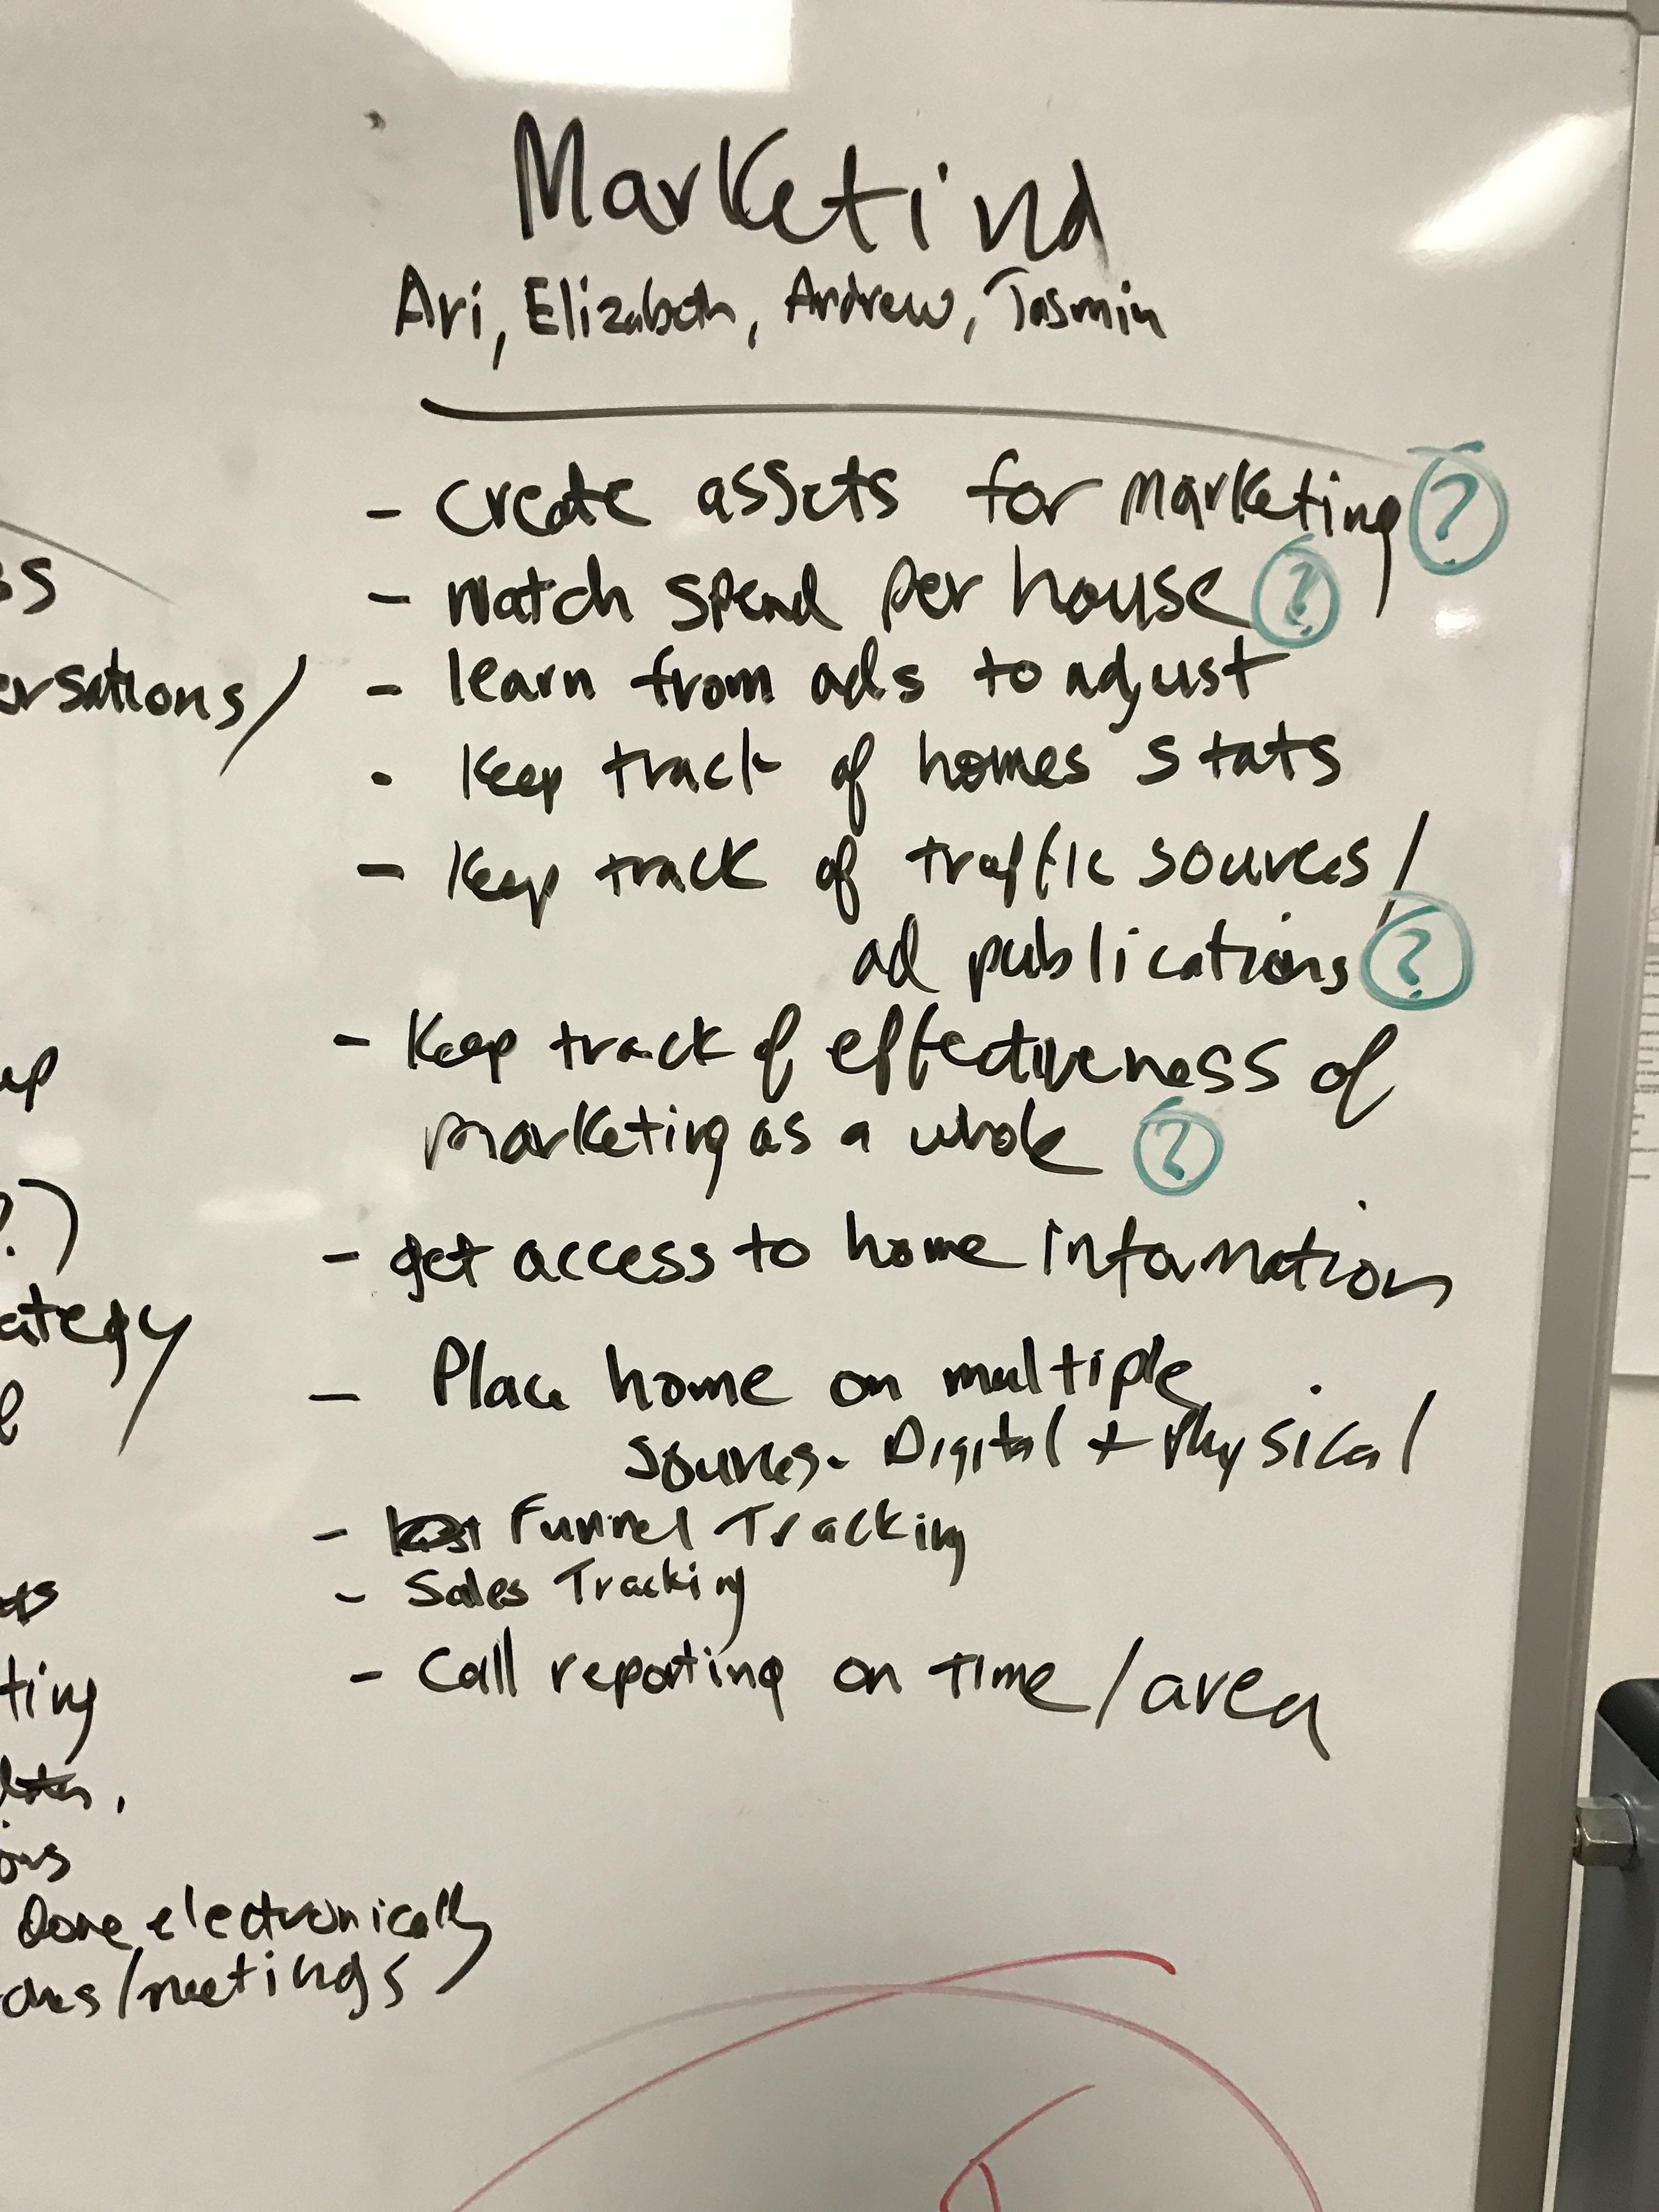 Marketing
Ari, Elizabeth, Andrew, Jasmin
- create assets for marketing ?
- watch spend per house ?
- learn from ads to adjust
- Keep track of homes stats
- Keep track of traffic sources/
ad publications ?
- Keep track of effectiveness of
marketing as a whole ?
- get access to home information
- Place home on multiple
sources. Digital + Physical
- Funnel Tracking
- Sales Tracking
- Call reporting on time/area
ersations/
?)
ategy
ting
Done electronically
/meetings